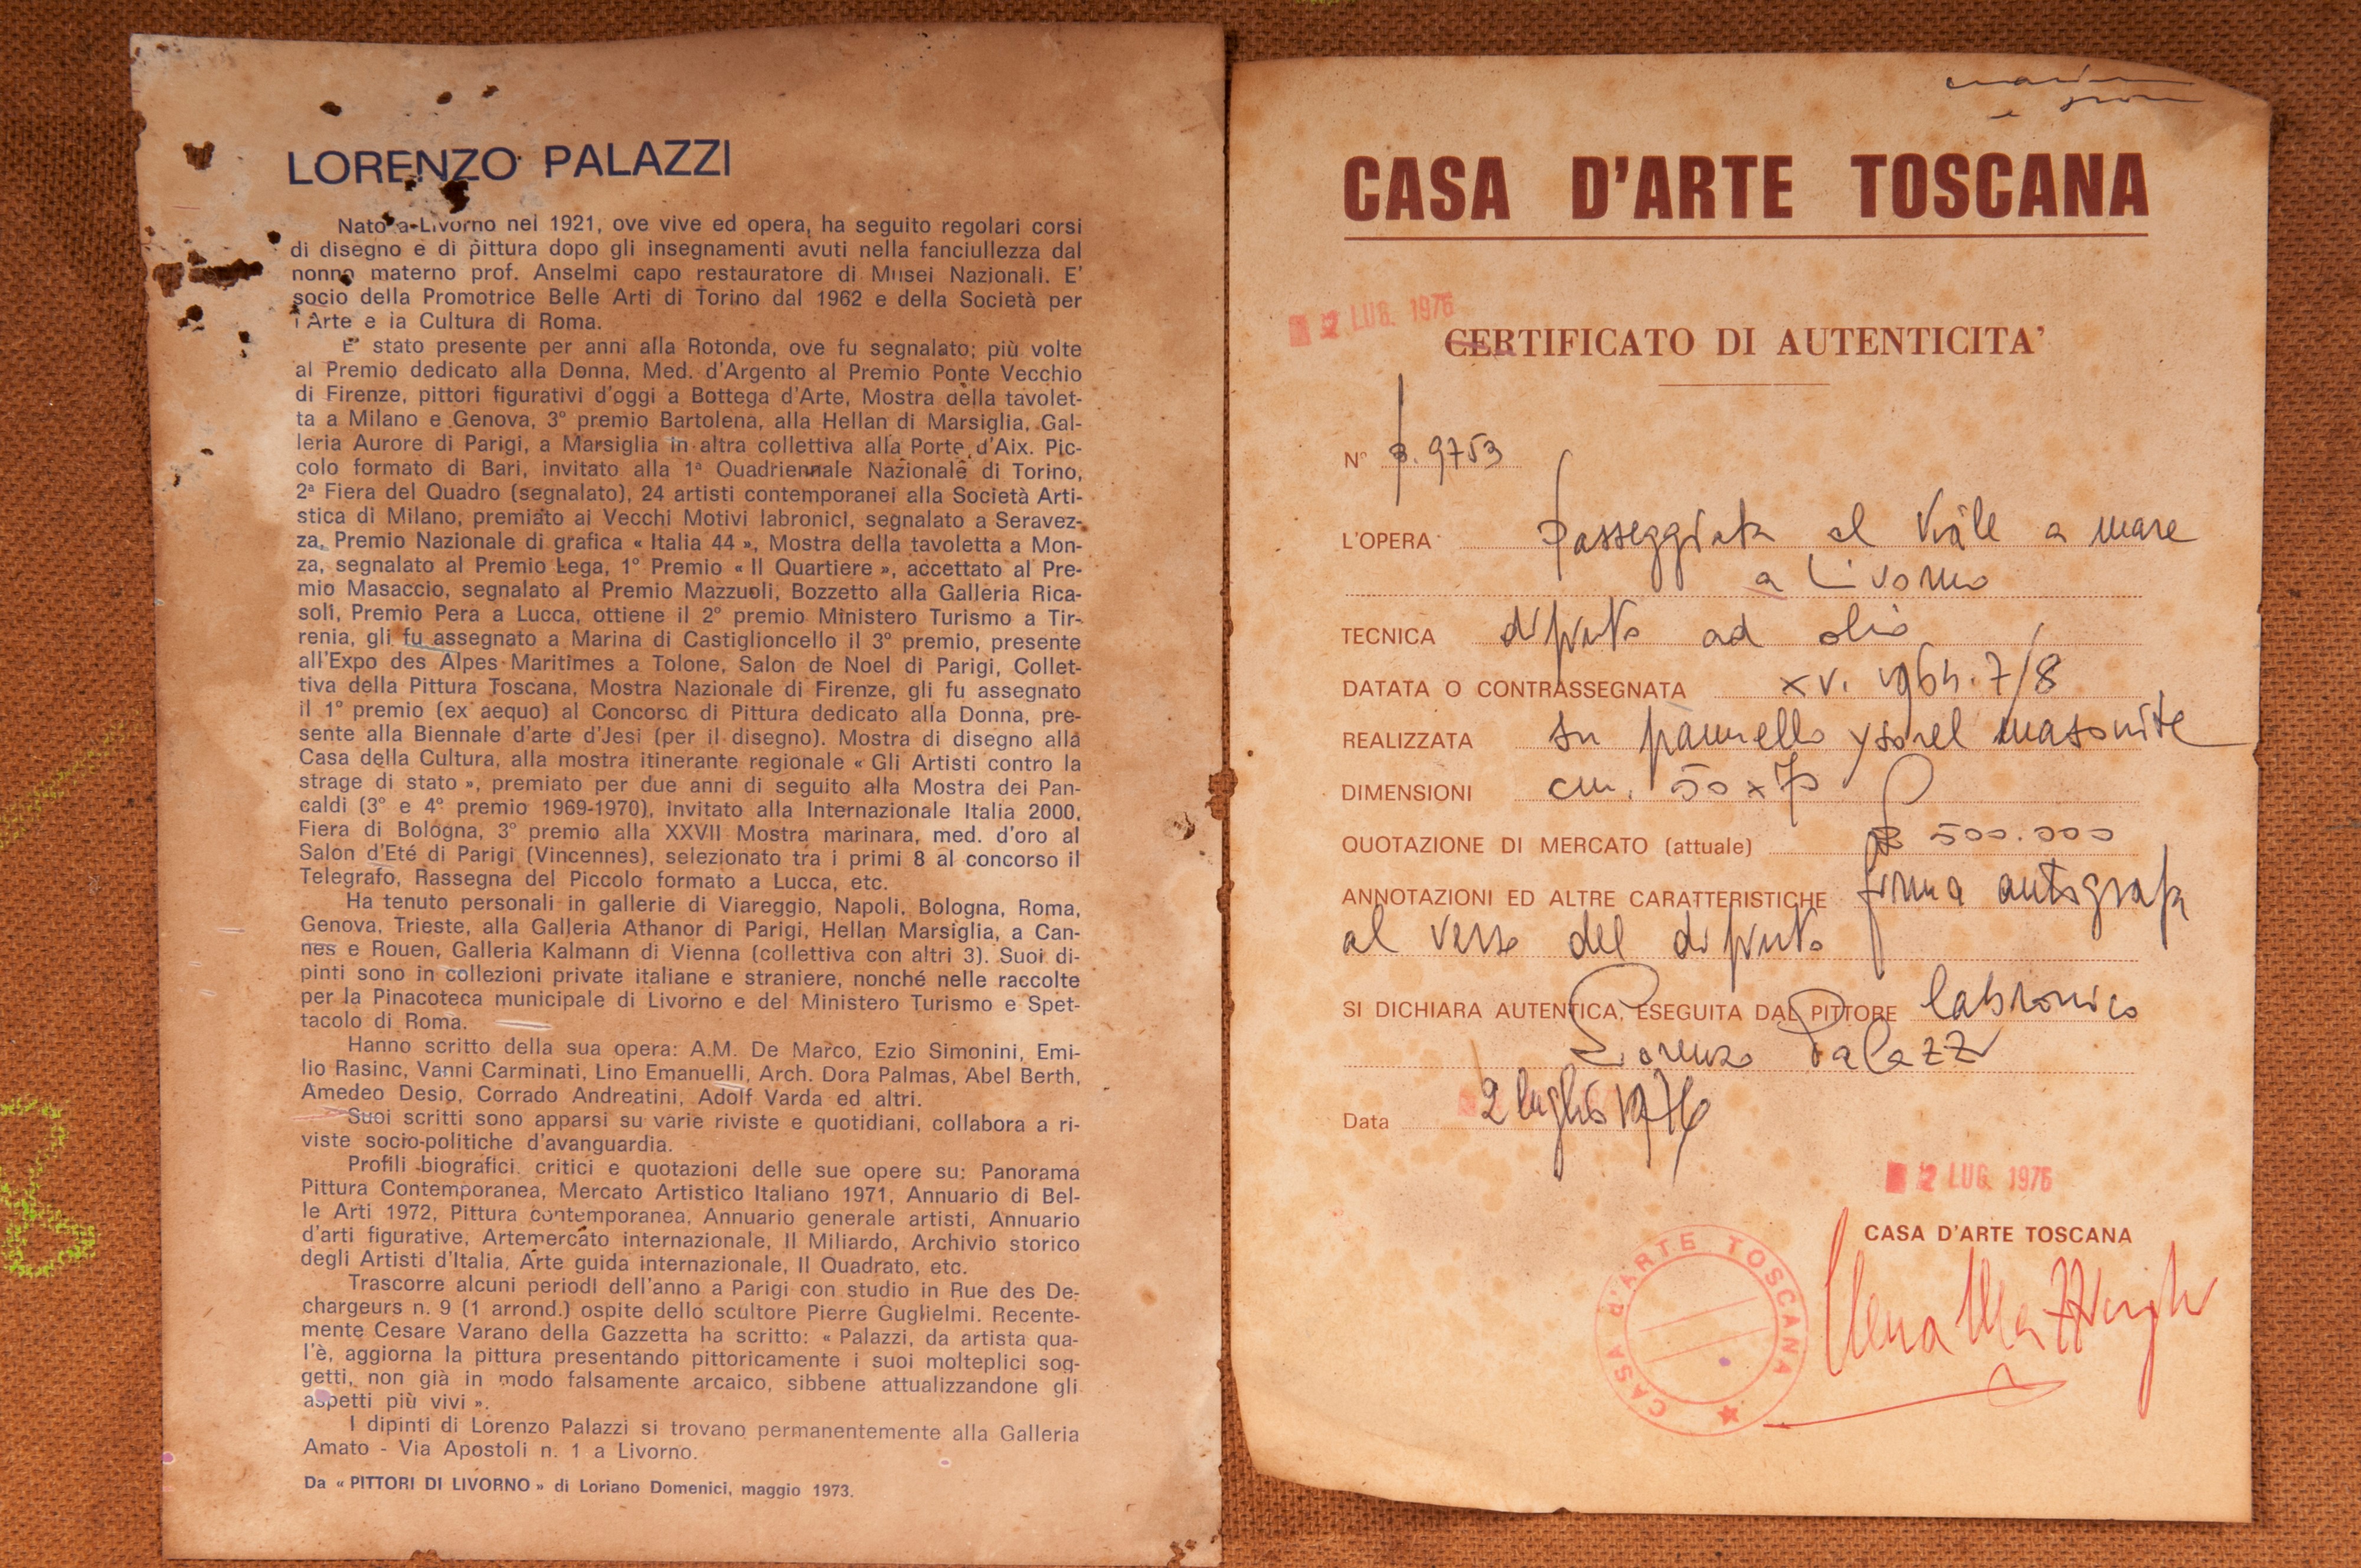 LORENZO PALAZZI
Nato a Livorno nel 1921, ove vive ed opera, ha seguito regolari corsi
di disegno e di pittura dopo gli insegnamenti avuti nella fanciullezza dal
nonno materno prof. Anselmi capo restauratore di Musei Nazionali. E'
socio della Promotrice Belle Arti di Torino dal 1962 e della Società per
l'Arte e la Cultura di Roma.
E' stato presente per anni alla Rotonda, ove fu segnalato; più volte
al Premio dedicato alla Donna, Med. d'Argento al Premio Ponte Vecchio
di Firenze, pittori figurativi d'oggi a Bottega d'Arte, Mostra della tavolet-
ta a Milano e Genova, 3º premio Bartolena, alla Hellan di Marsiglia, Gal-
leria Aurore di Parigi, a Marsiglia in altra collettiva alla Porte d'Aix. Pic-
colo formato di Bari, invitato alla 1ª Quadriennale Nazionale di Torino,
2ª Fiera del Quadro (segnalato), 24 artisti contemporanei alla Società Arti-
stica di Milano, premiato ai Vecchi Motivi labronici, segnalato a Seravez-
za, Premio Nazionale di grafica « Italia 44 », Mostra della tavoletta a Mon-
za, segnalato al Premio Lega, 1º Premio « Il Quartiere », accettato al Pre-
mio Masaccio, segnalato al Premio Mazzuoli, Bozzetto alla Galleria Rica-
soli, Premio Pera a Lucca, ottiene il 2º premio Ministero Turismo a Tir-
renia, gli fu assegnato a Marina di Castiglioncello il 3º premio, presente
all'Expo des Alpes Maritimes a Tolone, Salon de Noel di Parigi, Collet-
tiva della Pittura Toscana, Mostra Nazionale di Firenze, gli fu assegnato
il 1º premio (ex aequo) al Concorso di Pittura dedicato alla Donna, pre-
sente alla Biennale d'arte d'Jesi (per il disegno). Mostra di disegno alla
Casa della Cultura, alla mostra itinerante regionale « Gli Artisti contro la
strage di stato », premiato per due anni di seguito alla Mostra dei Pan-
caldi (3º e 4º premio 1969-1970), invitato alla Internazionale Italia 2000,
Fiera di Bologna, 3º premio alla XXVII Mostra marinara, med. d'oro al
Salon d'Eté di Parigi (Vincennes), selezionato tra i primi 8 al concorso il
Telegrafo, Rassegna del Piccolo formato a Lucca, etc.
Ha tenuto personali in gallerie di Viareggio, Napoli, Bologna, Roma,
Genova, Trieste, alla Galleria Athanor di Parigi, Hellan Marsiglia, a Can-
nes e Rouen, Galleria Kalmann di Vienna (collettiva con altri 3). Suoi di-
pinti sono in collezioni private italiane e straniere, nonché nelle raccolte
per la Pinacoteca municipale di Livorno e del Ministero Turismo e Spet-
tacolo di Roma.
Hanno scritto della sua opera: A.M. De Marco, Ezio Simonini, Emi-
lio Rasinc, Vanni Carminati, Lino Emanuelli, Arch. Dora Palmas, Abel Berth,
Amedeo Desio, Corrado Andreatini, Adolf Varda ed altri.
Suoi scritti sono apparsi su varie riviste e quotidiani, collabora a ri-
viste socio-politiche d'avanguardia.
Profili biografici, critici e quotazioni delle sue opere su: Panorama
Pittura Contemporanea, Mercato Artistico Italiano 1971, Annuario di Bel-
le Arti 1972, Pittura contemporanea, Annuario generale artisti, Annuario
d'arti figurative, Artemercato internazionale, Il Miliardo, Archivio storico
degli Artisti d'Italia, Arte guida internazionale, Il Quadrato, etc.
Trascorre alcuni periodi dell'anno a Parigi con studio in Rue des De-
chargeurs n. 9 (1 arrond.) ospite dello scultore Pierre Guglielmi. Recente-
mente Cesare Varano della Gazzetta ha scritto: « Palazzi, da artista qua-
l'è, aggiorna la pittura presentando pittoricamente i suoi molteplici sog-
getti, non già in modo falsamente arcaico, sibbene attualizzandone gli
aspetti più vivi ».
I dipinti di Lorenzo Palazzi si trovano permanentemente alla Galleria
Amato - Via Apostoli n. 1 a Livorno.
Da « PITTORI DI LIVORNO » di Loriano Domenici, maggio 1973.
CASA D'ARTE TOSCANA
2 LUG. 1976
CERTIFICATO DI AUTENTICITA'
Nº 9753
L'OPERA passeggiata al Viale a mare
a Livorno
TECNICA dipinto ad olio
DATATA O CONTRASSEGNATA XV. 1964. 7/8
REALIZZATA su pannello ysorel masonite
DIMENSIONI cm. 50 x 70
QUOTAZIONE DI MERCATO (attuale) £ 500.000
ANNOTAZIONI ED ALTRE CARATTERISTICHE firma autografa
al verso del dipinto
SI DICHIARA AUTENTICA, ESEGUITA DAL PITTORE labronico
Lorenzo Palazzi
Data 2 luglio 1976
2 LUG. 1976
CASA D'ARTE TOSCANA
CASA D'ARTE TOSCANA